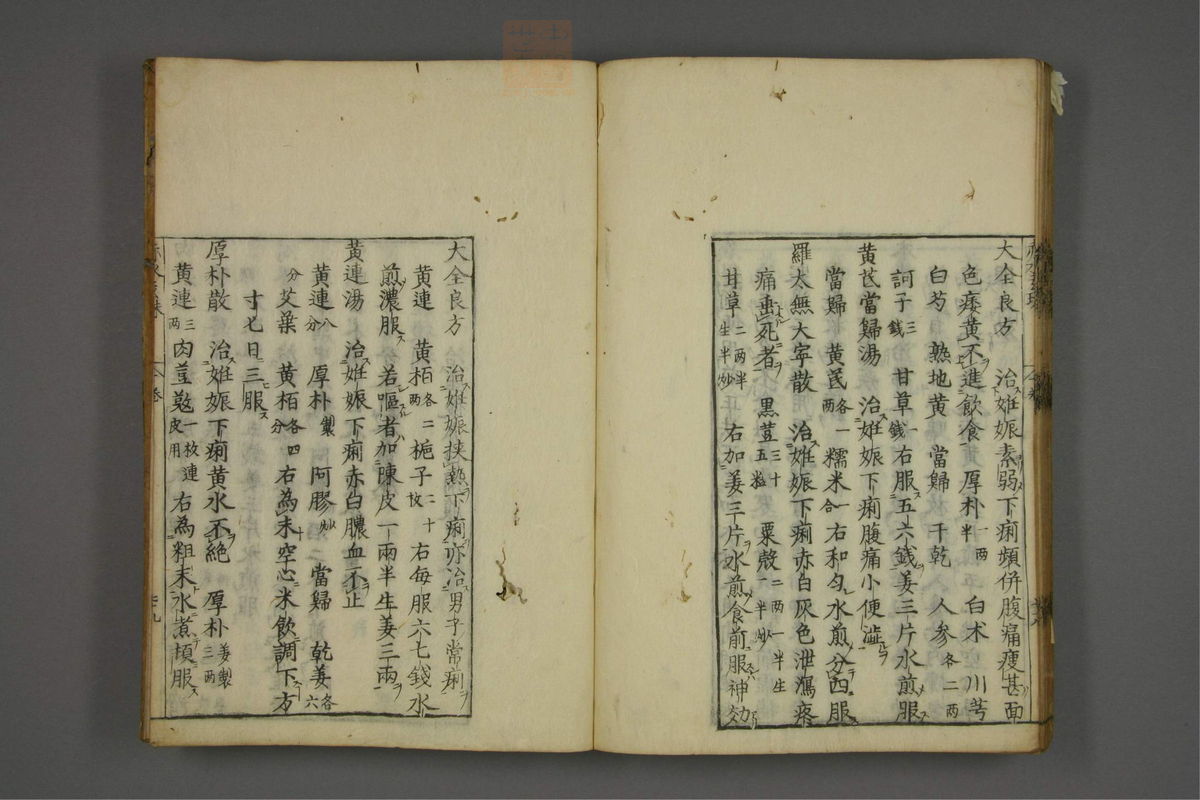 大全良方　治姙娠素弱下痢頻併腹痛瘦甚面
色痿黄不進飲食　厚朴一両半　白术　川芎
白芍　熟地黄　當歸　干乾　人参各二両
訶子三錢　甘草一錢　右服五六錢姜三片水煎服
黄芪當歸湯　治姙娠下痢腹痛小便澁
當歸　黄芪各一両　糯米一合　右和匀水煎分四服
羅太無大寧散　治姙娠下痢赤白灰色泄瀉疼
痛垂死者　黒荳三十五粒　粟殼二両一半生一半炒
甘草二両半生半炒　右加姜三片水煎食前服神効
大全良方　治姙娠挾熱下痢亦治男子常痢
黄連　黄栢各二両　梔子二十枚　右每服六七錢水
煎濃服　若嘔者加陳皮一兩半生姜三兩
黄連湯　治姙娠下痢赤白膿血不止
黄連八分　厚朴製　阿膠炒　當歸　乾姜各六
分　艾葉　黄栢各四分　右為末空心米飲調下方
寸匕日三服
厚朴散　治姙娠下痢黄水不絶　厚朴姜製三两
黄連三两　肉荳蔲一枚連皮用　右為粗末水煮頓服